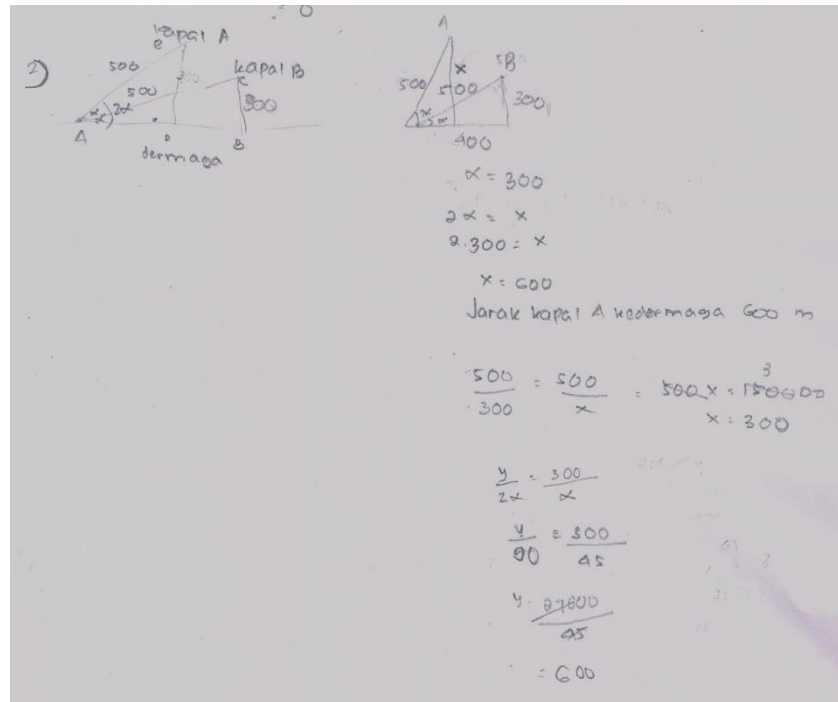 2)
kapal A
500
kapal B
500
300
α
α
2α
A
D
B
dermaga
A
500
x
500
B
300
α
α
400
α = 300
2α = x
2.300 = x
x = 600
Jarak kapal A kedermaga 600 m
500/300 = 500/x = 500x = 150000
3
x = 300
y/2α = 300/α
y/90 = 300/45
y = 27000/45
= 600